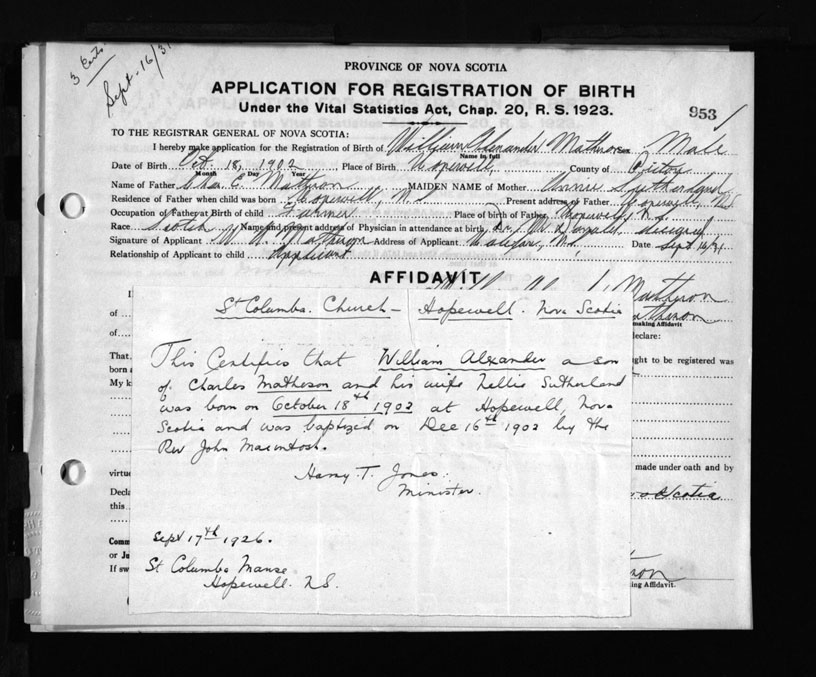 3 Certs
Sept-16/31
PROVINCE OF NOVA SCOTIA
APPLICATION FOR REGISTRATION OF BIRTH
Under the Vital Statistics Act, Chap. 20, R. S. 1923.
953
TO THE REGISTRAR GENERAL OF NOVA SCOTIA:
I hereby make application for the Registration of Birth of William Alexander Matheson Sex Male
Name in full
Date of Birth Oct. 18, 1902 Place of Birth Hopewell, County of Pictou
Month Day Year
Name of Father Chas. C. Matheson MAIDEN NAME of Mother Annie Sutherland
Residence of Father when child was born Hopewell, N.S. Present address of Father Hopewell, N.S.
Occupation of Father at Birth of child Farmer Place of birth of Father Hopewell, N.S.
Race Scotch Name and present address of Physician in attendance at birth Dr.
Signature of Applicant W. A. Matheson Address of Applicant Halifax, N.S. Date Sept 16/31
Relationship of Applicant to child Applicant
AFFIDAVIT
I
Matheson
of
making Affidavit
of
declare:
That
ught to be registered was
born a
My k
St Columba. Church - Hopewell. Nova Scotia
This Certifies that William Alexander a son
of Charles Matheson and his wife Nellie Sutherland
was born on October 18th 1902 at Hopewell, Nova
Scotia and was baptized on Dec 16th 1902 by the
Rev John Macintosh.
Harry T. Jones.
Minister.
Sept 17th 1926.
St Columba Manse
Hopewell. N.S.
virtue
made under oath and by
Decla
Scotia
this
Comm
or Ju
If sw
ing Affidavit.